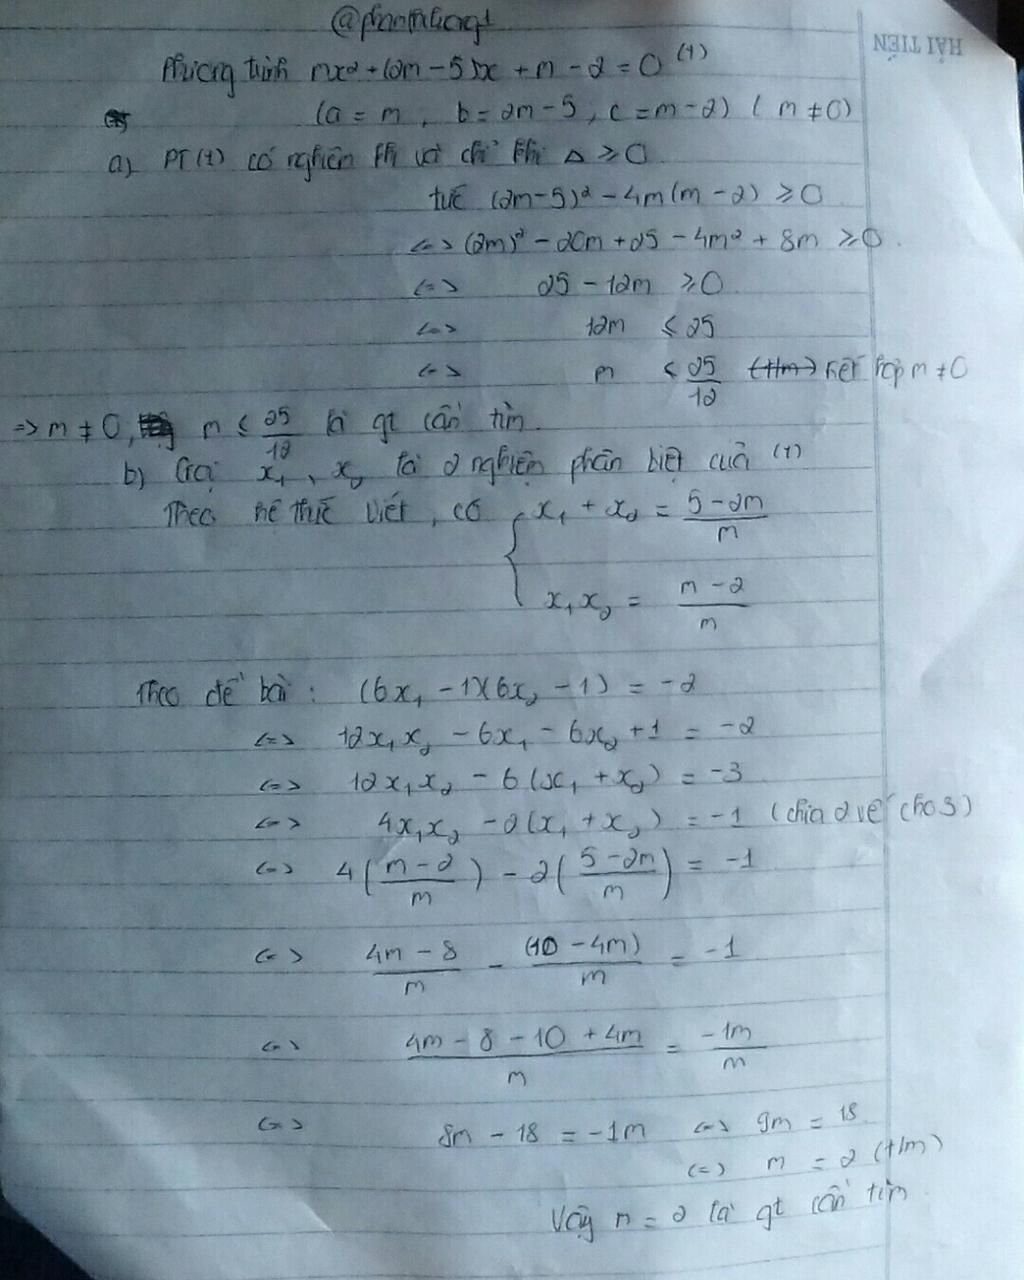 @phamthuong1
HẢI TIẾN
Phương trình mx2 + (2m - 5)x + m - 2 = 0 (1)
(a = m, b = 2m - 5, c = m - 2) (m ≠ 0)
a) PT (1) có nghiệm khi và chỉ khi Δ ≥ 0
tức (2m-5)² - 4m(m - 2) ≥ 0
<=> (2m)² - 20m + 25 - 4m² + 8m ≥ 0.
<=> 25 - 12m ≥ 0
<=> 12m ≤ 25
<=> m ≤ 25/12 (t/m) kết hợp m ≠ 0
=> m ≠ 0, m ≤ 25/12 là gt cần tìm.
b) Gọi x₁, x₂ là 2 nghiệm phân biệt của (1)
Theo hệ thức Viét, có { x₁ + x₂ = (5 - 2m)/m
x₁x₂ = (m - 2)/m
Theo đề bài: (6x₁ - 1)(6x₂ - 1) = -2
<=> 12x₁x₂ - 6x₁ - 6x₂ + 1 = -2
<=> 12x₁x₂ - 6(x₁ + x₂) = -3
<=> 4x₁x₂ - 2(x₁ + x₂) = -1 (chia 2 vế cho 3)
<=> 4((m - 2)/m) - 2((5 - 2m)/m) = -1
<=> (4m - 8)/m - (10 - 4m)/m = -1
<=> (4m - 8 - 10 + 4m)/m = -1m/m
<=> 8m - 18 = -1m <=> 9m = 18
<=> m = 2 (t/m)
Vậy m = 2 là gt cần tìm.